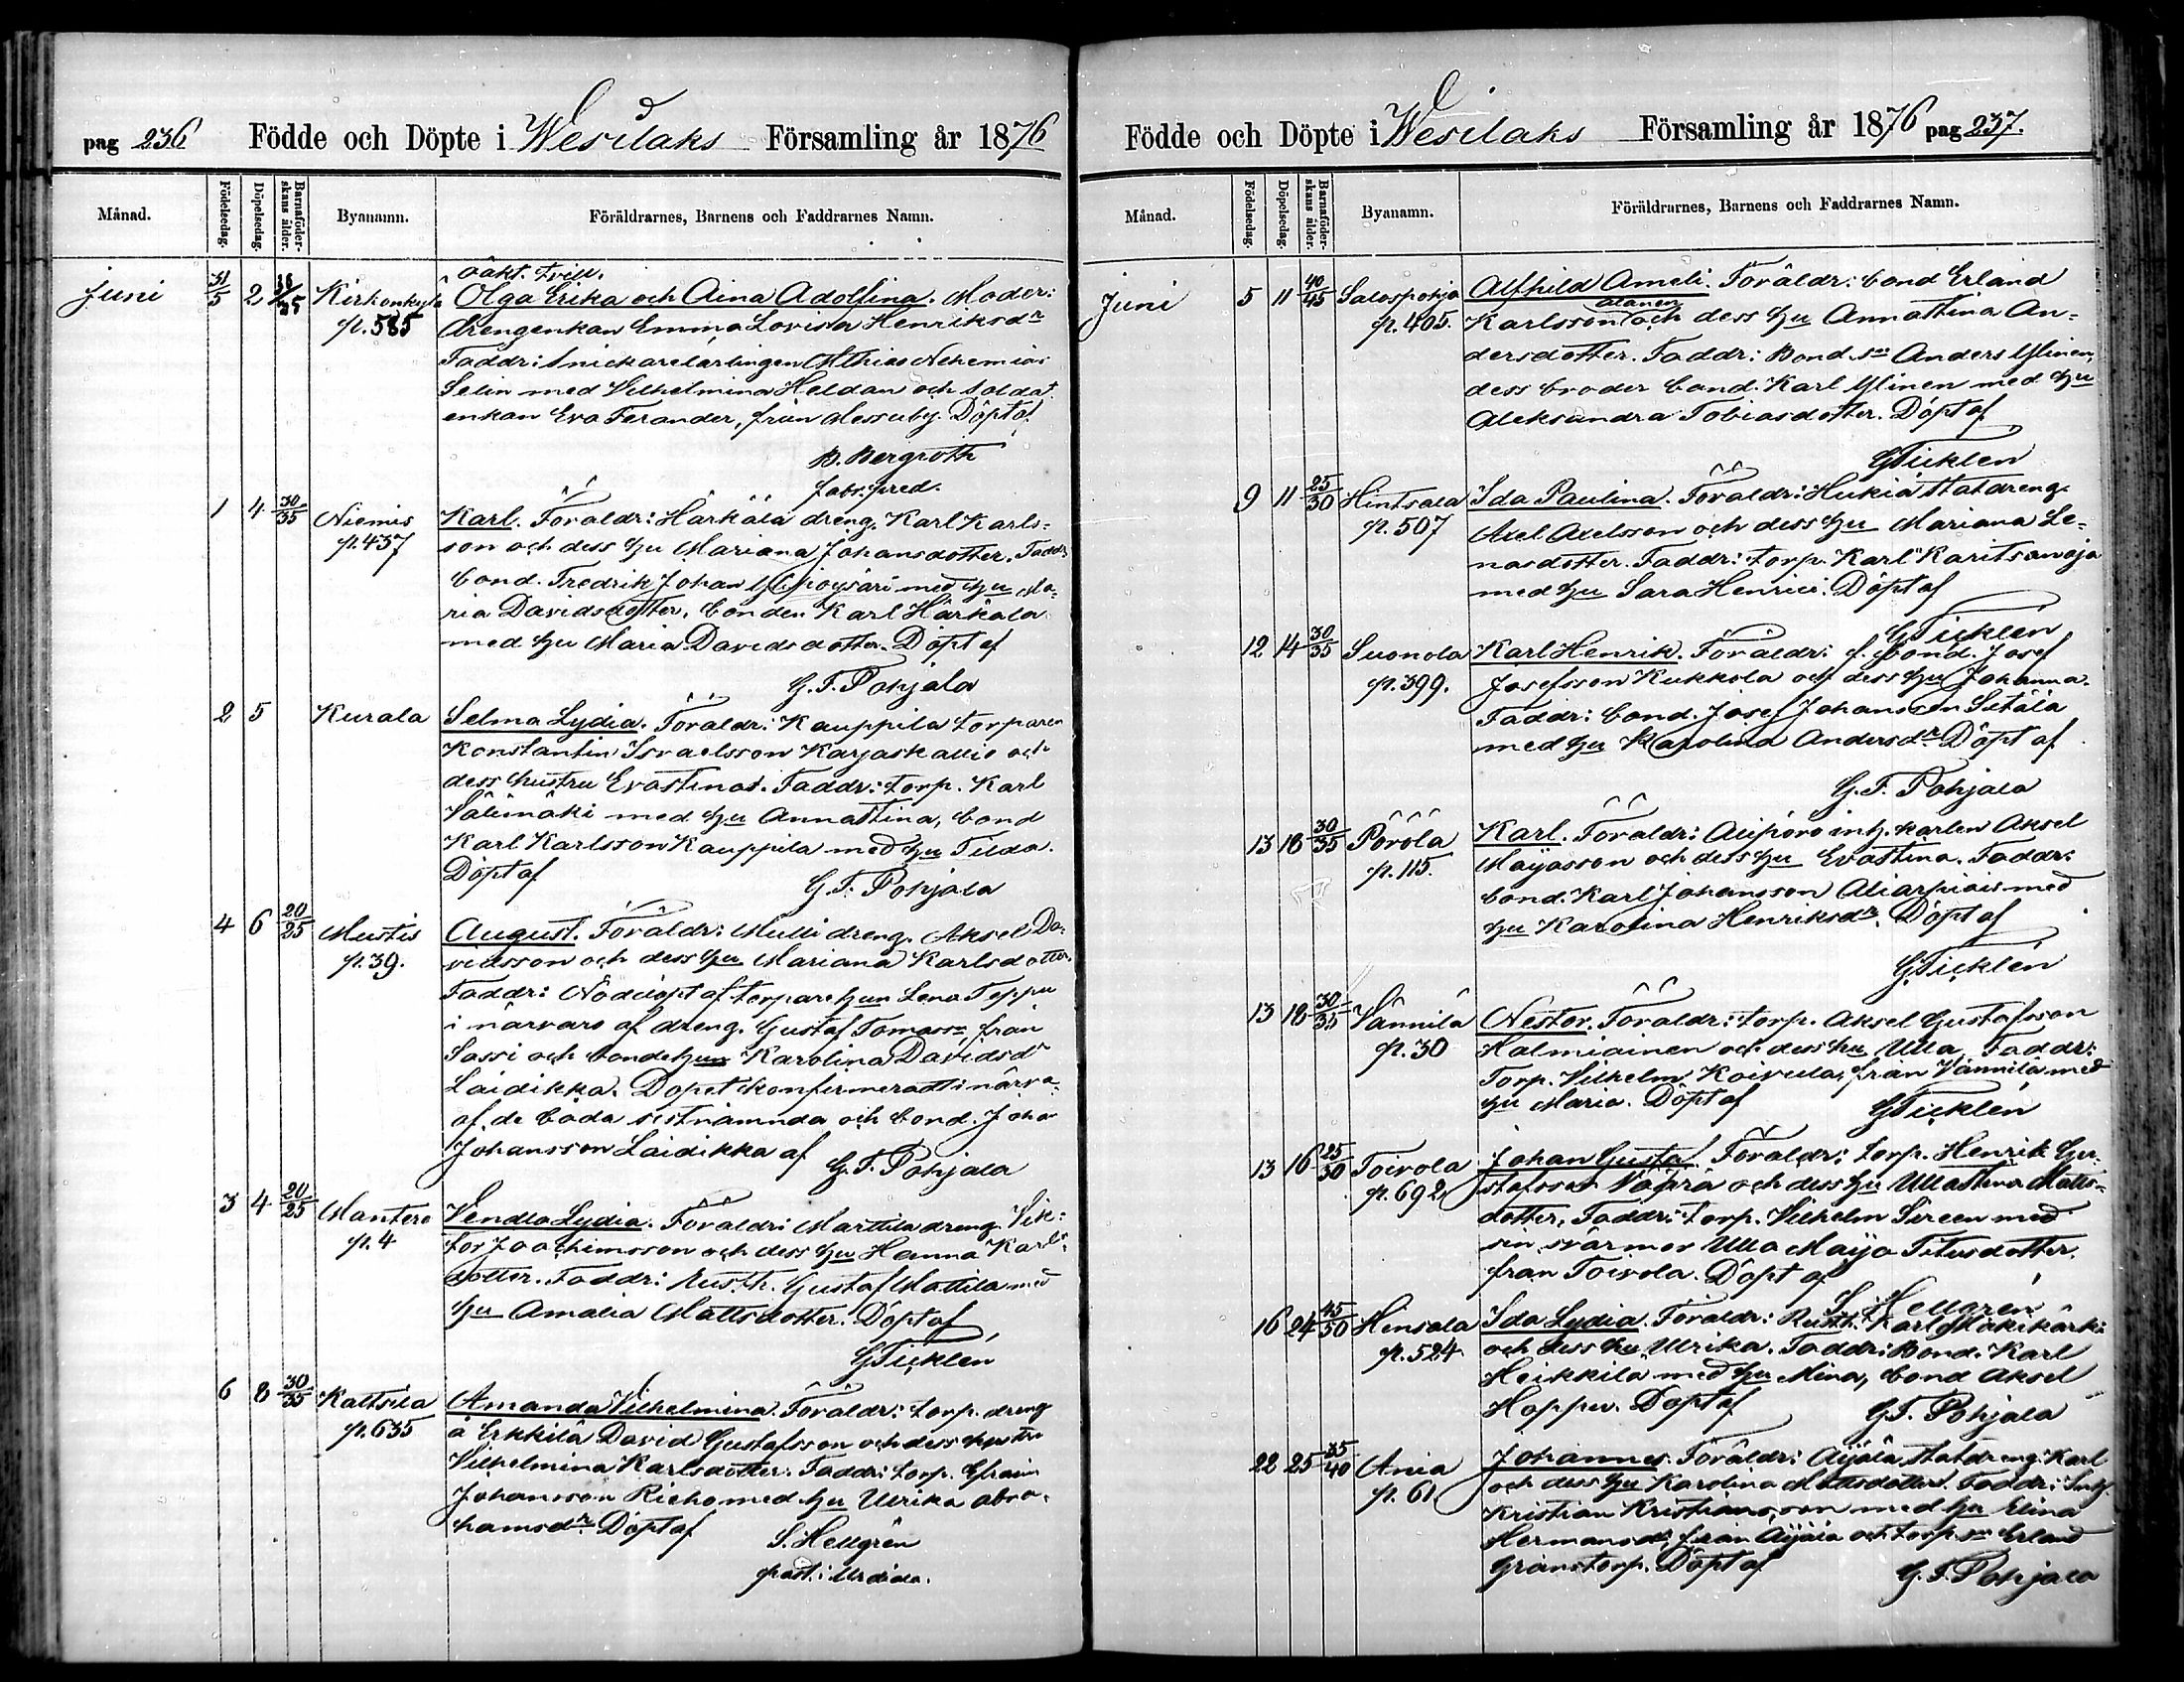 pag 236 Födde och Döpte i Wesilaks Församling år 1876
Månad. Födelsedag. Döpelsedag. Barnaföderskans ålder. Byanamn. Föräldrarnes, Barnens och Faddrarnes Namn.
oäkt. tvill.
Juni 31/5 2 Kirkonkylä Olga Erika och Aina Adolfina. Moder:
p. 585 drengenkan Emma Lovisa Henriksdr
Faddr: snickarelärlingen Nehemias
Selin med Vilhelmina Heldan och soldat
enkan Eva Ferander, från Messuby. Döpt af
B. Bergroth
1 4 30/35 Niemis Karl. Föräldr: Härkälä dreng. Karl Karls=
p. 437 son och dess hu Mariana Johansdotter. Faddr:
bond. Fredrik Johan med hu Ma=
ria Davidsdotter, bonden Karl Härkälä
med hu Maria Davidsdotter. Döpt af
G. F. Pohjala
2 5 Kurala Selma Lydia. Föräldr: Kauppila torparen
Konstantin Israelsson Karjaskallio och
dess hustru Evastina. Faddr: torp. Karl
Välimäki med hu Annastina, bond
Karl Karlsson Kauppila med hu Tilda.
Döpt af G. F. Pohjala
4 6 20/25 Mustis August. Föräldr: Mulli dreng. Aksel Da=
p. 39. vidsson och dess hu Mariana Karlsdotter.
Faddr: Nöddöpt af torpare hun Lena Teppu
i närvaro af dreng. Gustaf Tomass. från
Sassi och bonde hun Karolina Davidsd
Laidikka. Dopet konfirmeradt i närva.
af de båda sistnämnda och bond. Joha
Johansson Laidikka af G. F. Pohjala
3 4 20/25 Mantere Vendla Lydia. Föräldr: Marttila dreng. Vik=
p. 4 tor Joachimsson och dess hu Hanna Karls
dotter. Faddr: Rusth. Gustaf Mattila med
hu Amalia Mattsdotter. Döpt af
G Ticklén
6 8 30/35 Kaltsila Amanda Vilhelmina. Föräldr: torp. dreng
p. 635 å Erkkilä David Gustafsson och dess hustru
Vilhelmina Karlsdotter. Faddr: torp. Efraim
Johansson Rieho med hu Ulrika Abra=
hamsdr. Döpt af S. Hellgrén
past. i Urdiala.
Födde och Döpte i Wesilaks Församling år 1876 pag 237.
Månad. Födelsedag. Döpelsedag. Barnaföderskans ålder. Byanamn. Föräldrarnes, Barnens och Faddrarnes Namn.
Juni 5 11 40/45 Salospohja Alfhild Ameli. Föräldr: bond Erland
alanen
p. 405. Karlsson och dess hu Annastina An=
dersdotter. Faddr: Bond.sn Anders Ylinen,
dess broder bond. Karl Ylinen med hu
Aleksandra Tobiasdotter. Döpt af
G Ticklén
9 11 25/30 Hintsala Ida Paulina. Föräldr: Hukia statdreng.
p. 507 Axel Axelsson och dess hu Mariana Le=
nasdotter. Faddr: torp. Karl Karitsanoja
med hu Sara Henrici. Döpt af
G Ticklén
12 14 30/35 Suonola Karl Henrik. Föräldr: f. bond. Josef
p. 399. Josefsson Kukkola och dess hu Johanna.
Faddr: bond. Josef Johansson Setälä
med hu Karolina Andersdr. Döpt af
G. F. Pohjala
13 18 30/35 Pörölä Karl. Föräldr: inh. karlen Aksel
p. 115. Mayasson och dess hu Evastina. Faddr:
bond. Karl Johansson med
hu Karolina Henriksdr. Döpt af
G Ticklén
13 18 30/35 Vännilä Nestor. Föräldr: torp. Aksel Gustafsson
p. 30 Halmiainen och dess hu Ulla. Faddr:
Torp. Vilhelm Koivula, från Vännilä med
hu Maria. Döpt af G Ticklén
13 16 25/30 Toivola Johan Gusta Föräldr: torp. Henrik Gu=
p. 692 stafsson Väprä och dess hu Ullastina Matts=
dotter. Faddr: torp. Vilhelm Sireen med
sin svärmor Ulla Maija Titusdotter,
från Toivola. Döpt af
S. Hellgrén
16 24 45/50 Hinsala Ida Lydia. Föräldr: Rusth. Karl
p. 524 och dess hu Ulrika. Faddr: Bond. Karl
Heikkilä med hu Mina, bond Aksel
Hoppu. Döpt af G. F. Pohjala
22 25 35/40 Ania Johannes. Föräldr: Äijälä statdreng. Karl
p. 61 och dess hu Karolina Mattsdotter. Faddr: Inh
Kristian Kristiansson med hu Elina
Hermansd., från Äijälä och torp.sn Erland
Granstorp. Döpt af G. F. Pohjala